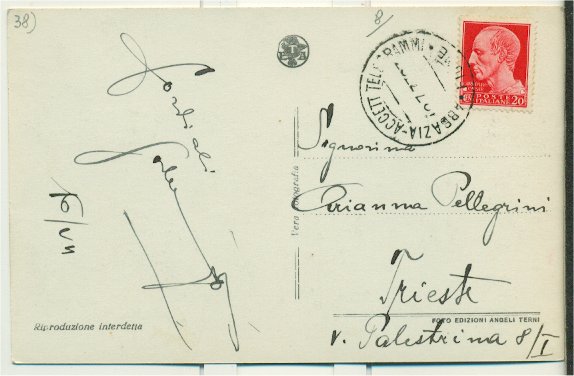 38)
8
ABBAZIA-ACCETT. TELEGRAMMI
POSTE
ITALIANE 20
Cordiali
Saluti
Signorina
Arianna Pellegrini
Trieste
v. Palestrina 8/I
Vera fotografia
FOTO EDIZIONI ANGELI TERNI
Riproduzione interdetta